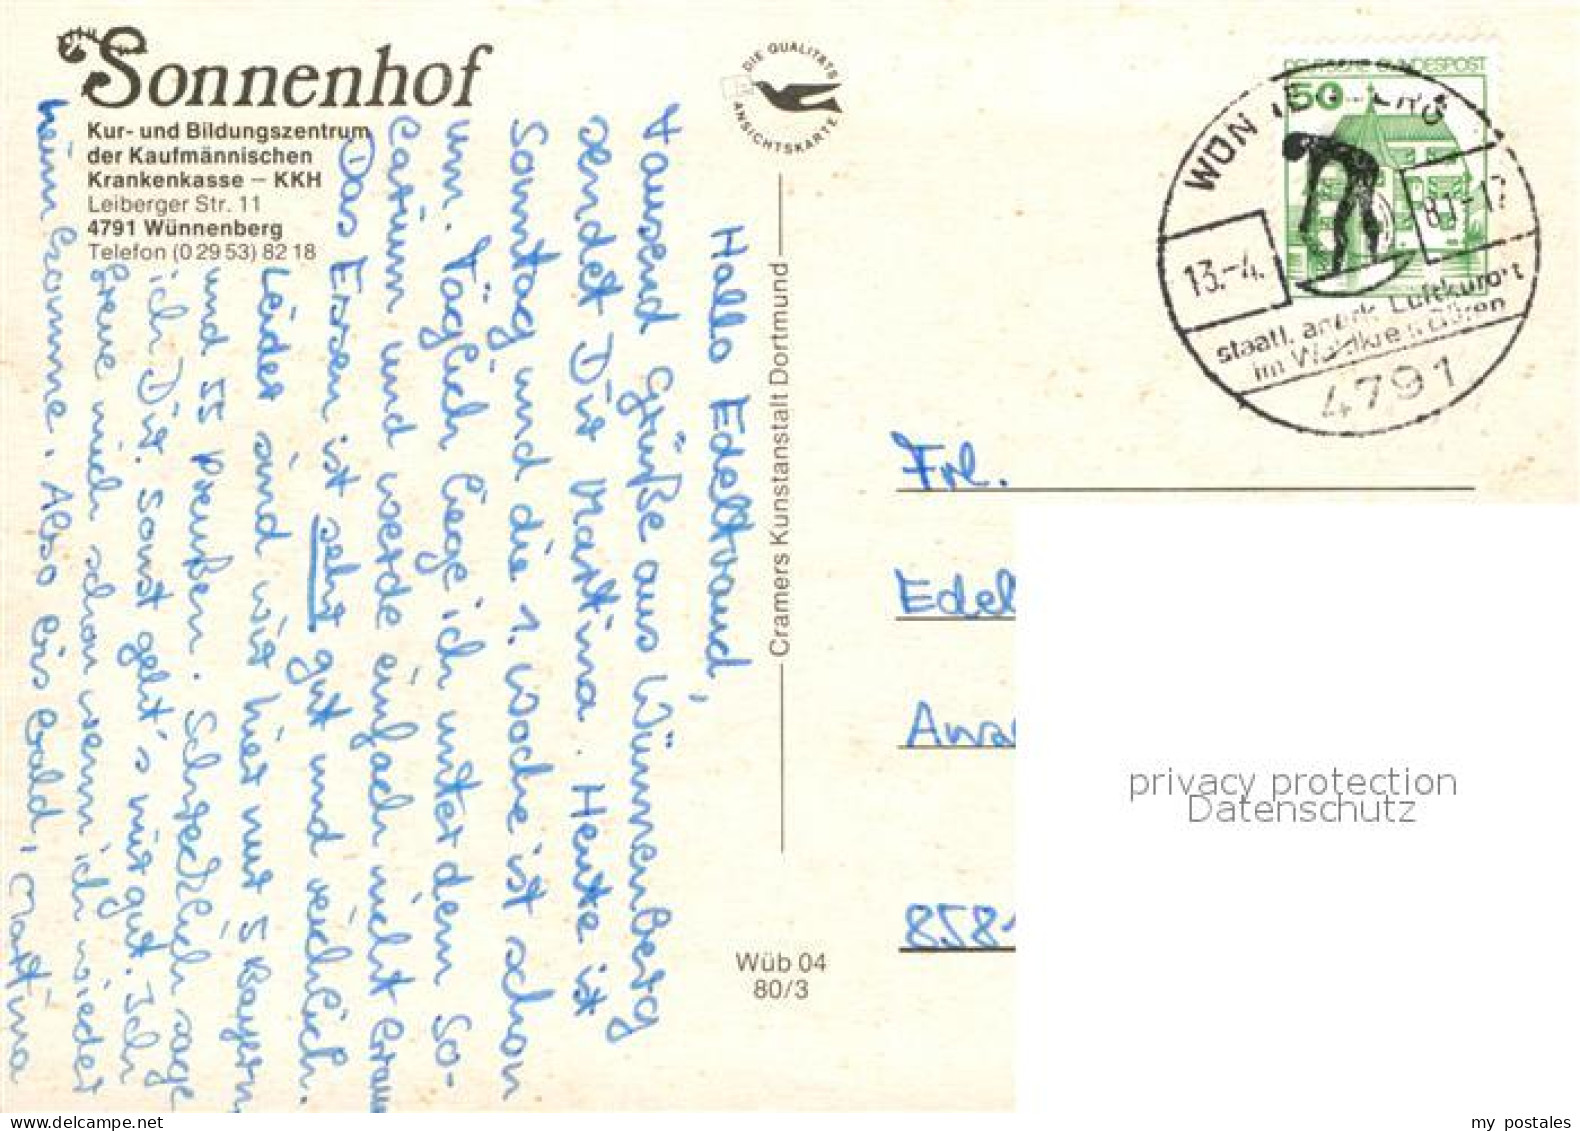 Sonnenhof
Kur- und Bildungszentrum
der Kaufmännischen
Krankenkasse – KKH
Leiberger Str. 11
4791 Wünnenberg
Telefon (0 29 53) 82 18
Hallo Edeltraud,
tausend Grüße aus Wünnenberg
sendet Dir Martina. Heute ist
Sonntag und die 1. Woche ist schon
um. Täglich liege ich unter dem So-
larium und werde einfach nicht braun
Das Essen ist sehr gut und reichlich.
Leider sind wir hier nur 5 Bayern
und 55 Preußen. Schrecklich sage
ich Dir. Sonst geht's mir gut. Ich
freue mich schon wenn ich wieder
heim komme. Also bis bald, Martina
DIE QUALITÄTS
ANSICHTSKARTE
Cramers Kunstanstalt Dortmund
Wüb 04
80/3
DEUTSCHE BUNDESPOST
50
13.-4.
81-17
staatl. anerk. Luftkurort
im Waldkreis Büren
4791
Frl.
Edel
Awa
858
privacy protection
Datenschutz
www.delcampe.net
my postales